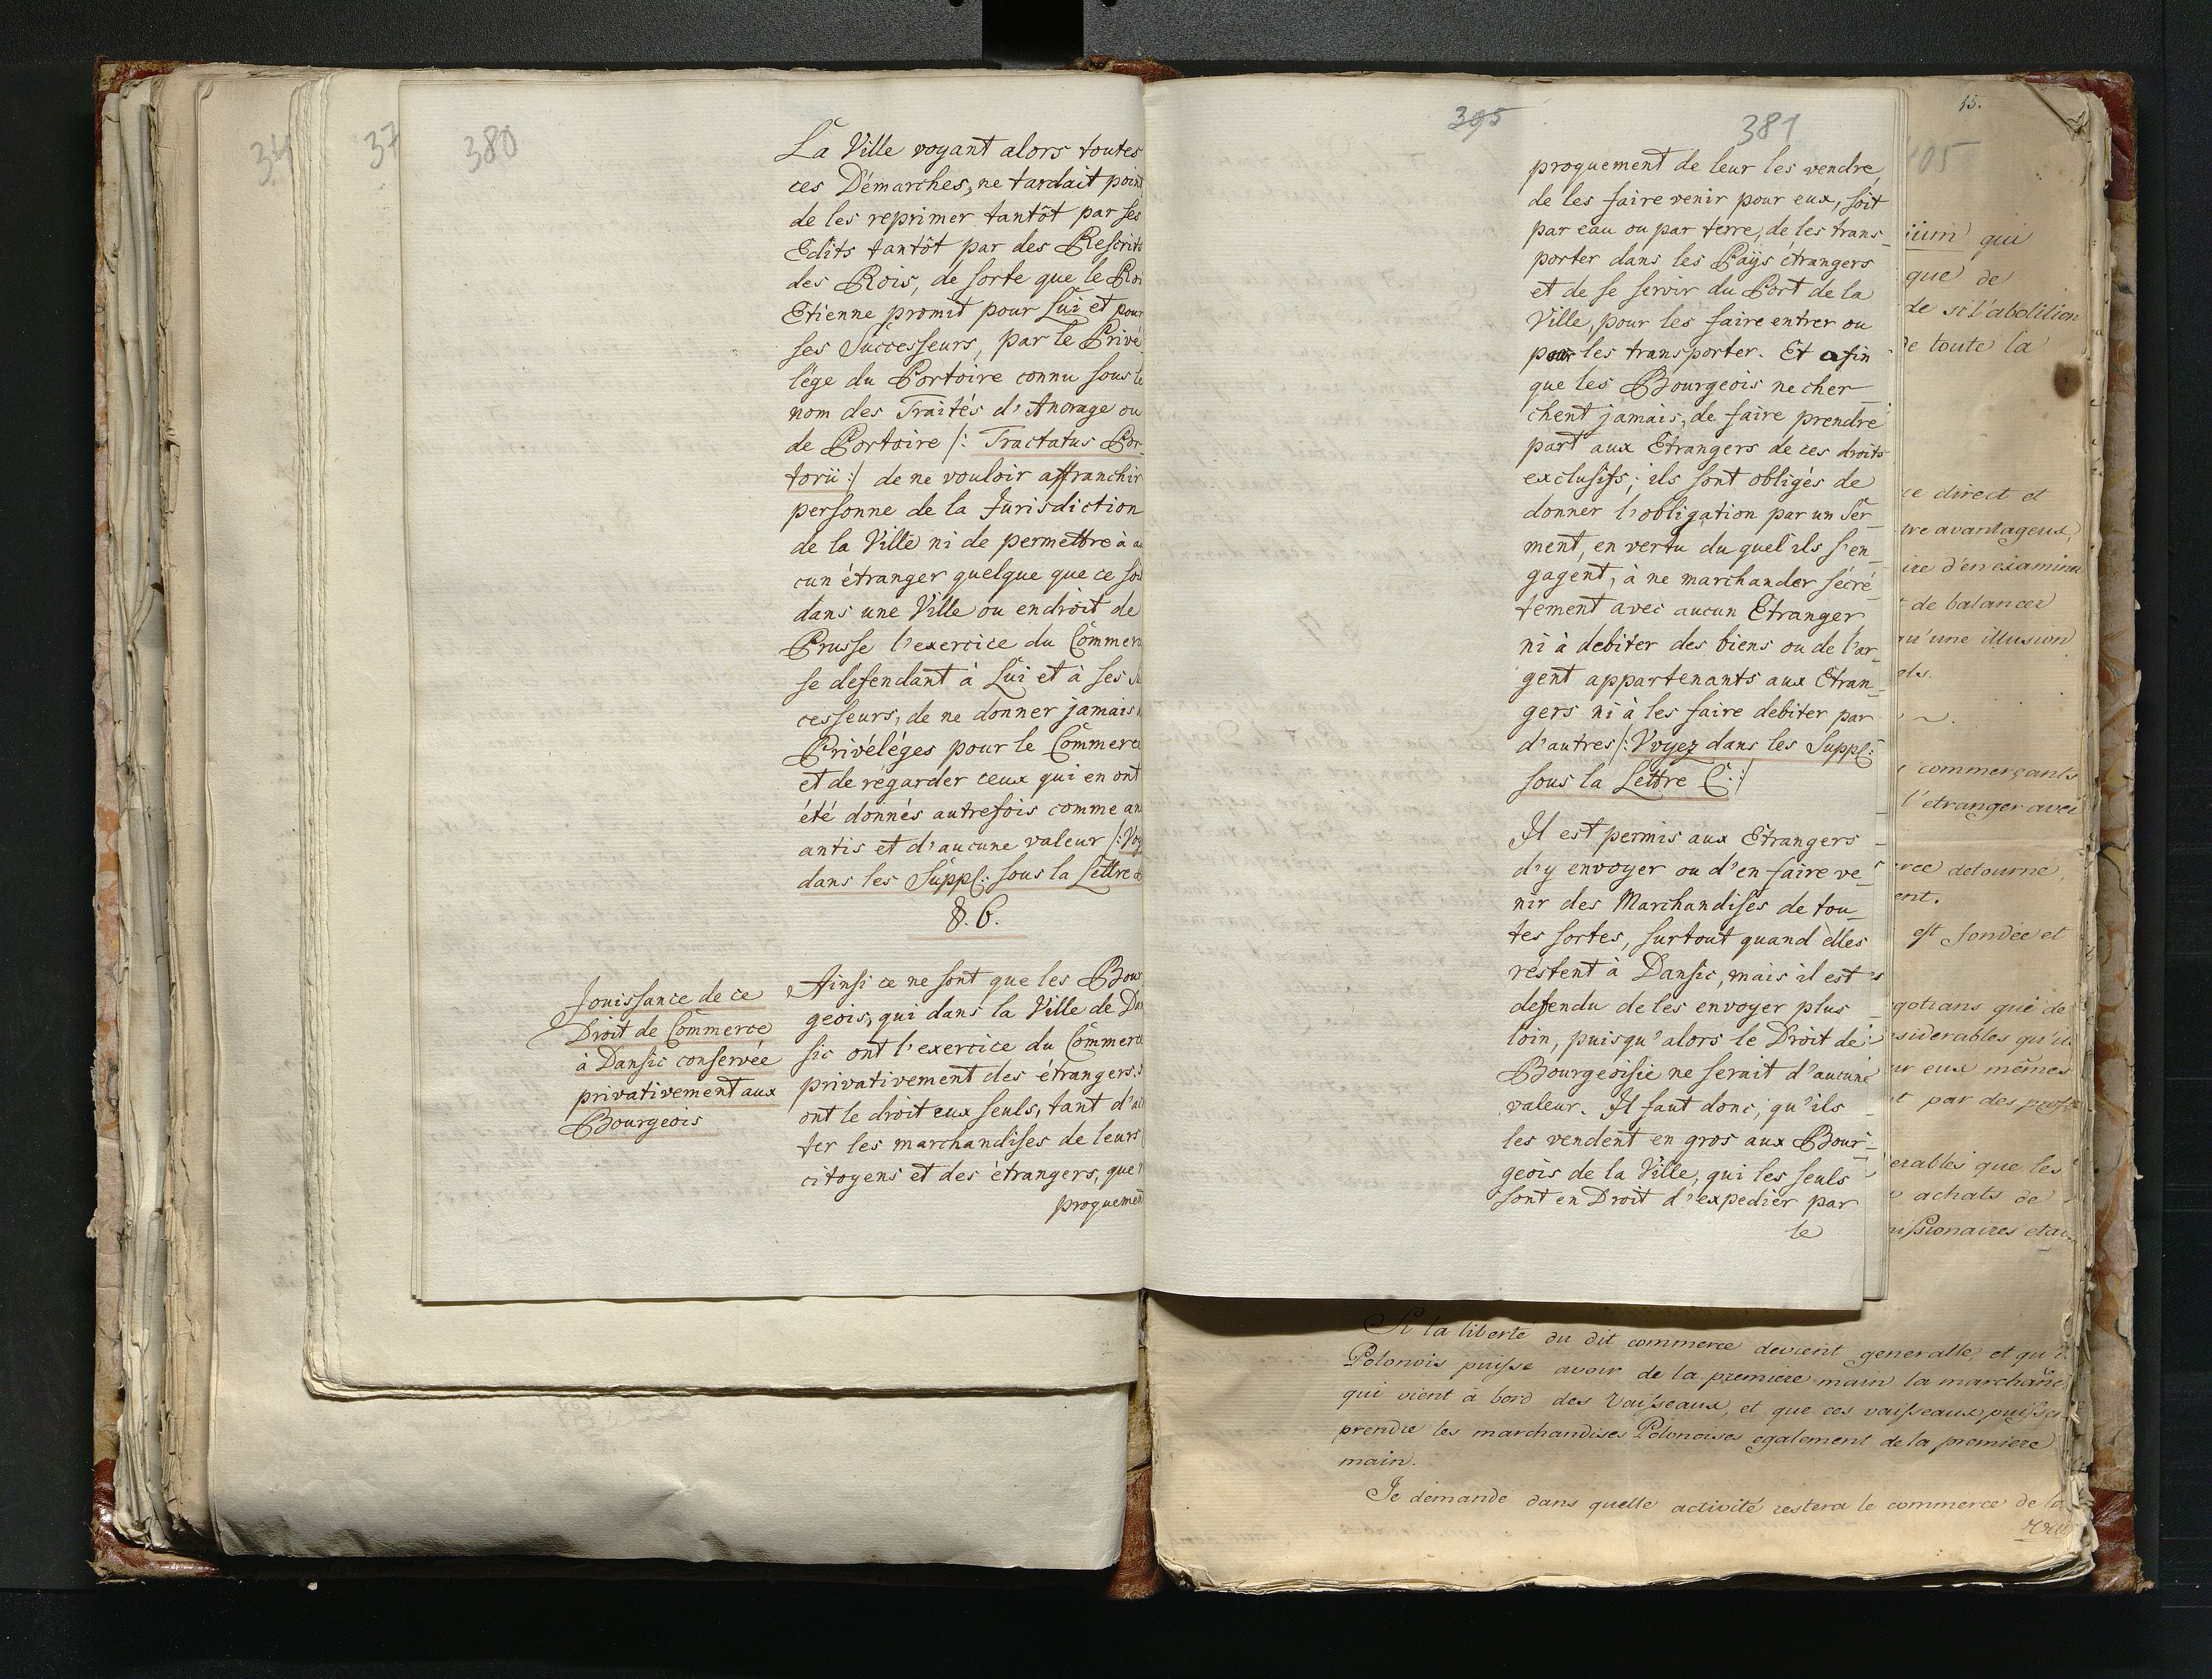 380
La Ville voyant alors toutes
ces Démarches, ne tardait point
de les reprimer tantôt par ses
Edits tantôt par des Rescrits
des Rois, de sorte que le Roi
Etienne promit pour Lui et pour
ses Successeurs, par le Privé
lége du Portoire connu sous le
nom des Traités d'Anorage ou
de Portoire /: Tractatus Por-
torii :/ de ne vouloir affranchir
personne de la Jurisdiction
de la Ville ni de permettre à au
cun étranger quelque que ce soit
dans une Ville ou endroit de
Prusse l'exercice du Commerce
se defendant à Lui et à ses
cesseurs, de ne donner jamais
Privéléges pour le Commerce
et de régarder ceux qui en ont
été donnés autrefois comme an
antis et d'aucune valeur /: Voy
dans les Suppl: sous la Lettre
§. 6.
Jouissance de ce
Droit de Commerce
à Dansic conservée
privativement aux
Bourgeois
Ainsi ce ne sont que les Bour
geois, qui dans la Ville de Dan
sic ont l'exercice du Commerce
privativement des étrangers.
ont le droit eux seuls, tant d'ac
ter les marchandises de leurs
citoyens et des étrangers, que
proquement
395
381
proquement de leur les vendre,
de les faire venir pour eux, soit
par eau ou par terre, de les trans-
porter dans les Païs étrangers
et de se servir du Port de la
Ville, pour les faire entrer ou
pour les transporter. Et afin
que les Bourgeois ne cher-
chent jamais, de faire prendre
part aux Etrangers de ces droits
exclusifs; ils sont obligés de
donner l'obligation par un Ser-
ment, en vertu du quel ils s'en-
gagent, à ne marchander sécré-
tement avec aucun Etranger
ni à debiter des biens ou de l'ar-
gent appartenants aux Etran-
gers ni à les faire debiter par
d'autres /: Voyez dans les Suppl:
sous la Lettre C: :/
Il est permis aux Etrangers
d'y envoyer ou d'en faire ve-
nir des Marchandises de tou-
tes sortes, surtout quand elles
restent à Dansic, mais il est
defendu de les envoyer plus
loin, puisqu'alors le Droit de
Bourgeoisie ne serait d'aucune
valeur. Il faut donc, qu'ils
les vendent en gros aux Bour-
geois de la Ville, qui les seuls
sont en Droit d'expedier par
le
15.
105
qui
que de
de si l'abolition
de toute la
ce direct et
tre avantageux,
ire d'en examiner
de balancer
qu'une illusion
commerçants
l'etranger avec
detourne,
est fondée et
gotians que de
siderables qu'il
eux mêmes
par des
erables que les
achats de
Si la liberté du dit commerce devient generalle, et qu'il
Polonois puisse avoir de la premiere main la marchand
qui vient à bord des Vaisseaux, et que ces vaisseaux puisse
prendre les marchandises Polonoises egalement de la premiere
main.
Je demande dans quelle activité restera le commerce de la